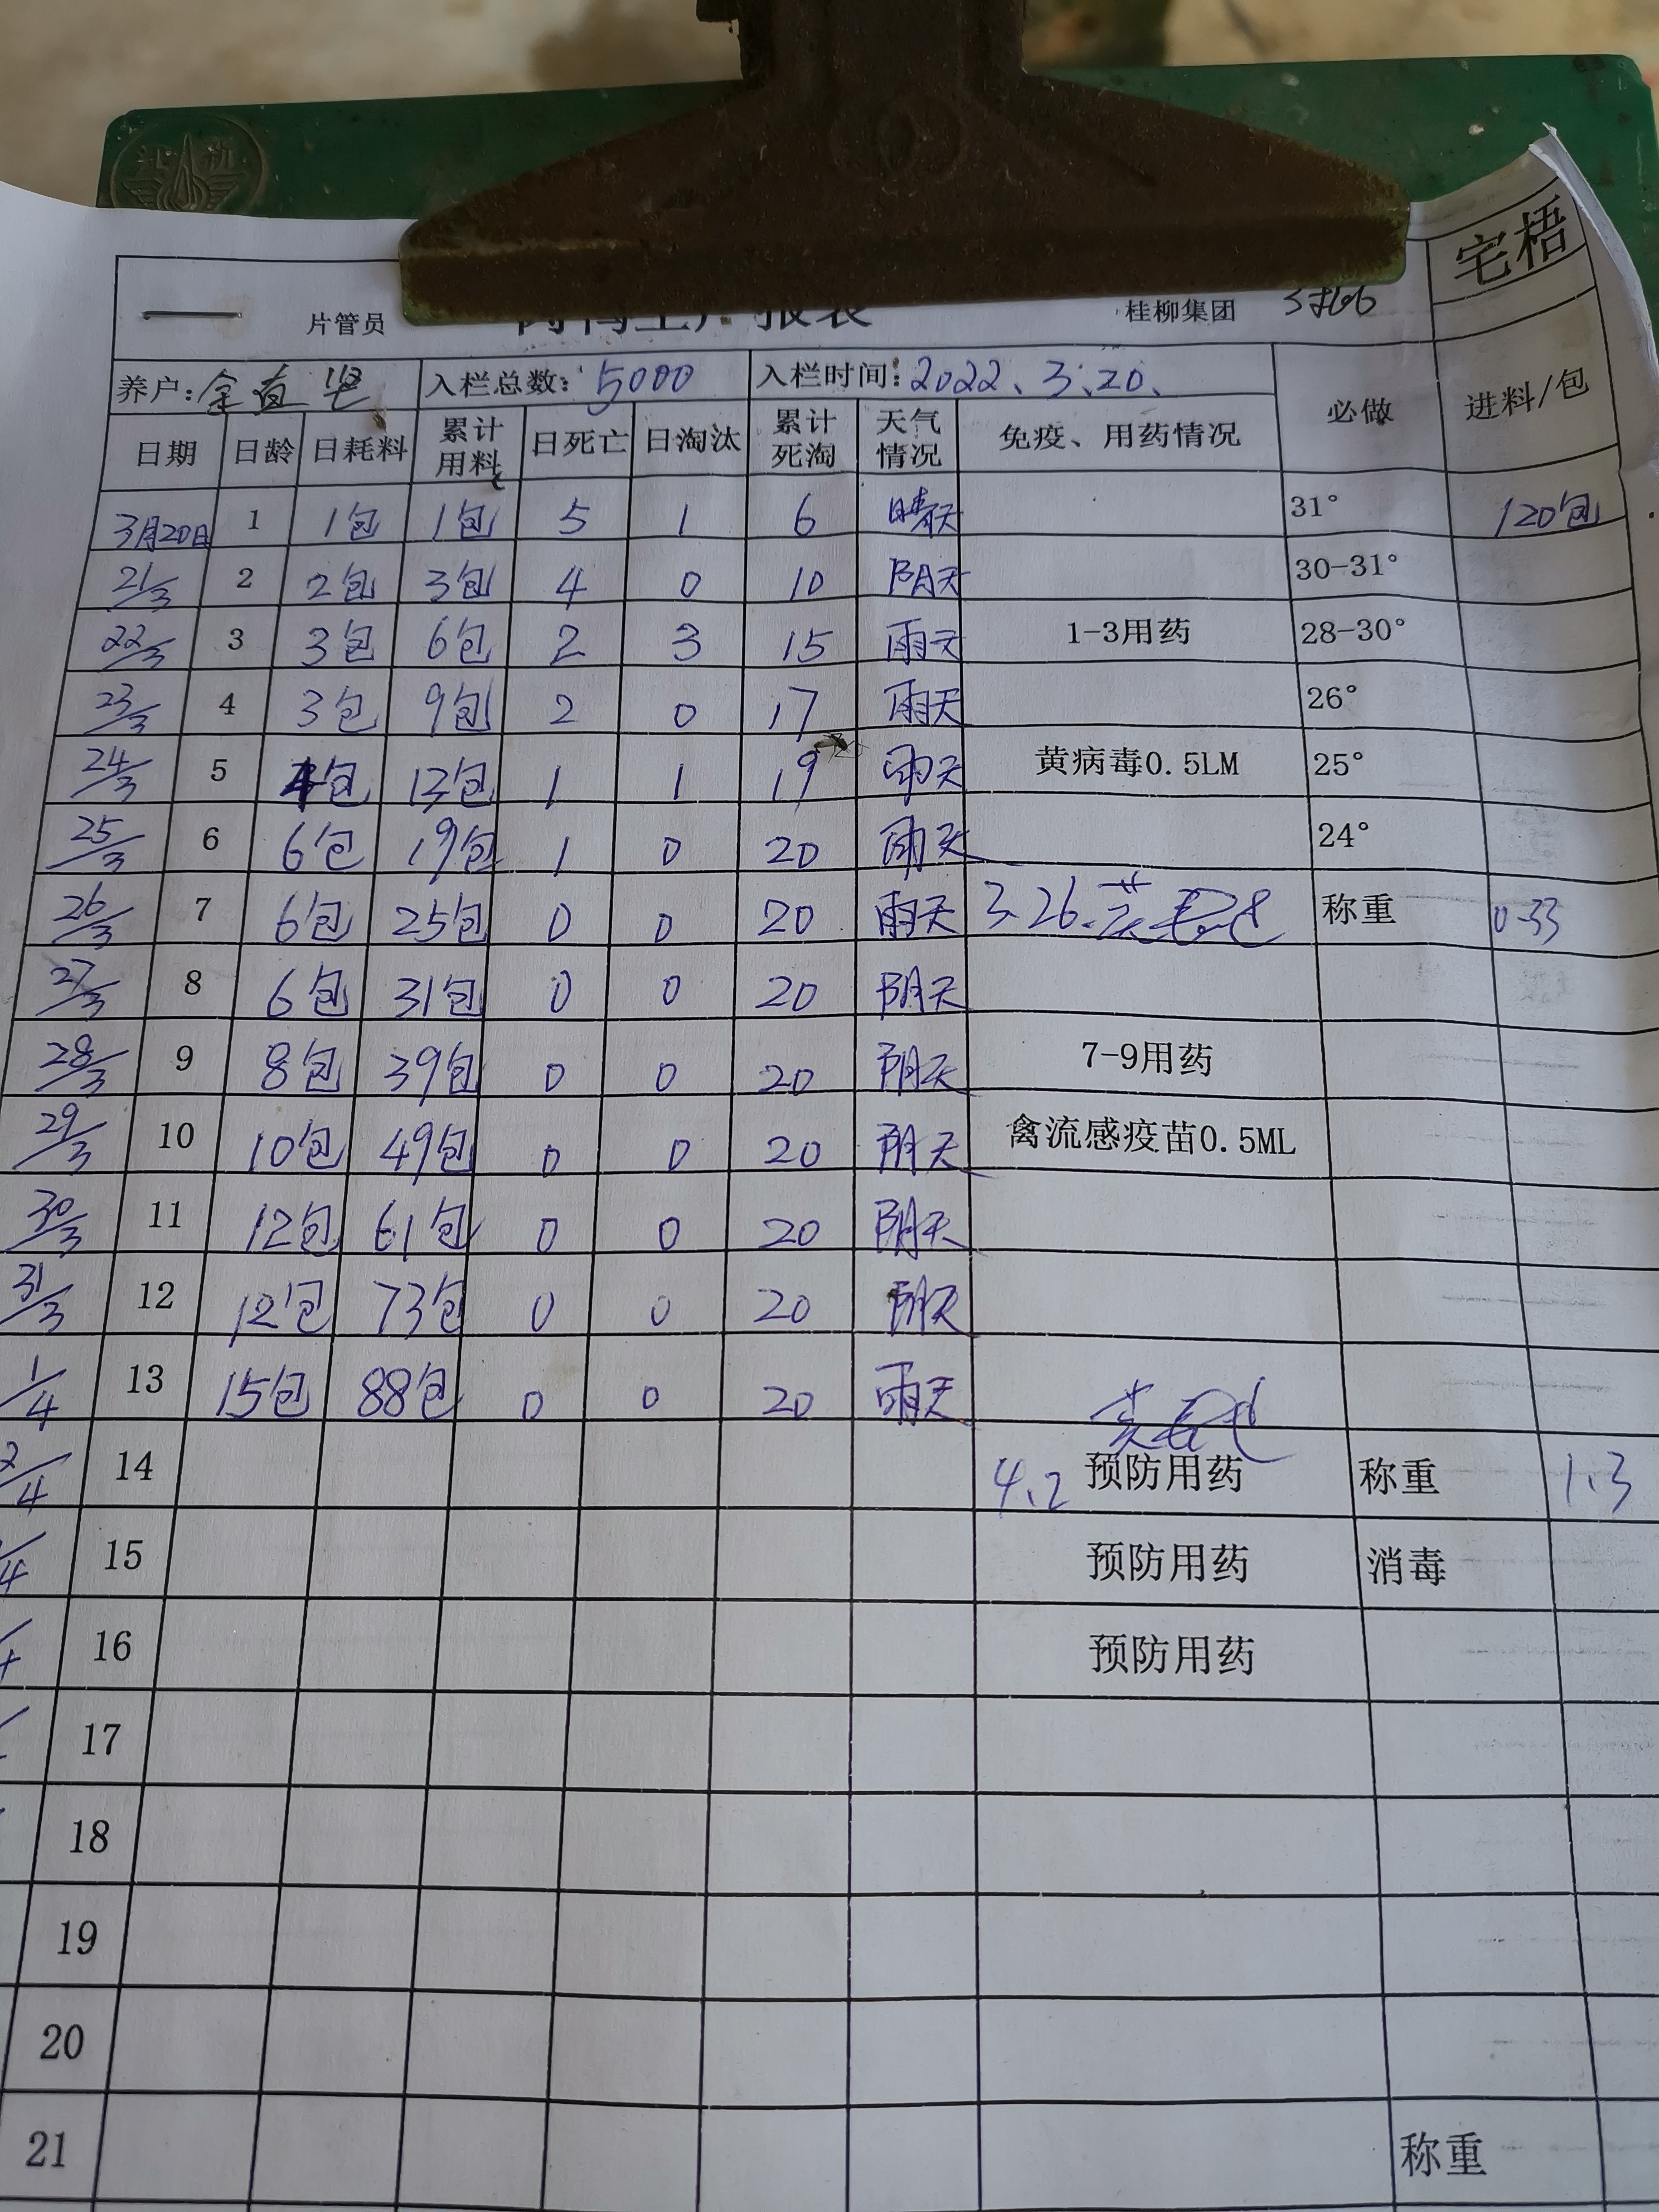 宅梧
片管员 桂柳集团
养户: 入栏总数: 5000 入栏时间: 2022、3.20、 必做 进料/包
日期 日龄 日耗料 累计用料 日死亡 日淘汰 累计死淘 天气情况 免疫、用药情况
3月20日 1 1包 1包 5 1 6 晴天 31° 120包
21/3 2 2包 3包 4 0 10 阴天 30-31°
22/3 3 3包 6包 2 3 15 雨天 1-3用药 28-30°
23/3 4 3包 9包 2 0 17 雨天 26°
24/3 5 4包 13包 1 1 19 雨天 黄病毒0.5LM 25°
25/3 6 6包 19包 1 0 20 雨天 24°
26/3 7 6包 25包 0 0 20 雨天 3.26. 称重 0.33
27/3 8 6包 31包 0 0 20 阴天
28/3 9 8包 39包 0 0 20 阴天 7-9用药
29/3 10 10包 49包 0 0 20 阴天 禽流感疫苗0.5ML
30/3 11 12包 61包 0 0 20 阴天
31/3 12 12包 73包 0 0 20 阴天
1/4 13 15包 88包 0 0 20 雨天
2/4 14 4、2 预防用药 称重 1.3
15 预防用药 消毒
16 预防用药
17
18
19
20
21 称重